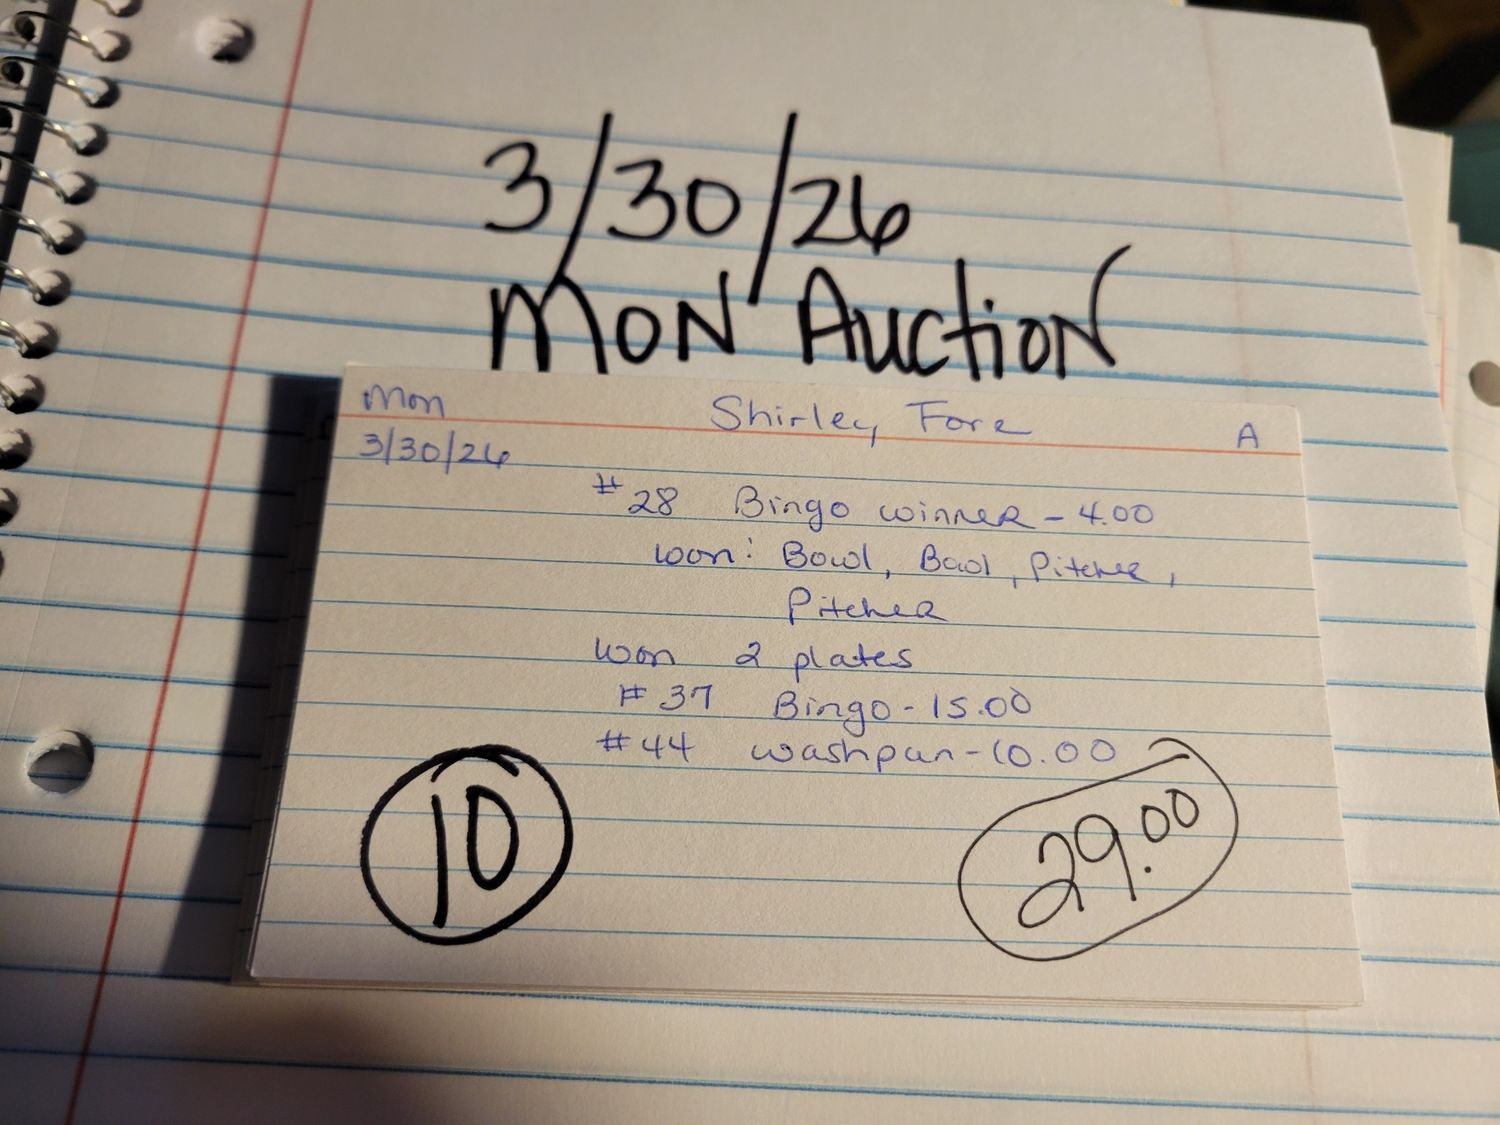 3/30/26
Mon Auction
Mon Shirley Fore A
3/30/26
#28 Bingo winner - 4.00
won: Bowl, Bowl, Pitcher,
Pitcher
Won 2 plates
#37 Bingo - 15.00
#44 washpan - 10.00
10
29.00